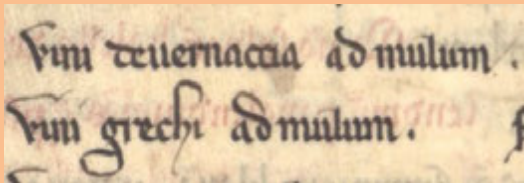 vini deuernaccia ad mulum .
vini grechi ad mulum .